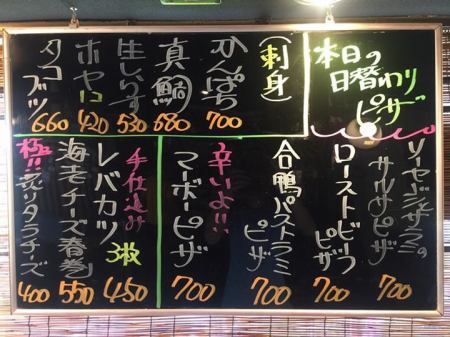 本日の
日替わり
ピザ
ソーセージとサラミの
サルサピザ
700
ローストビーフ
ピザ
700
合鴨パストラミ
ピザ
700
辛いよ!!
マーボーピザ
700
(刺身)
かんぱち
700
真鯛
580
生しらす
530
ホヤ
420
タコブツ
660
手仕込み
レバカツ
3枚
450
海老チーズ春巻
550
極!!炙りタラチーズ
400